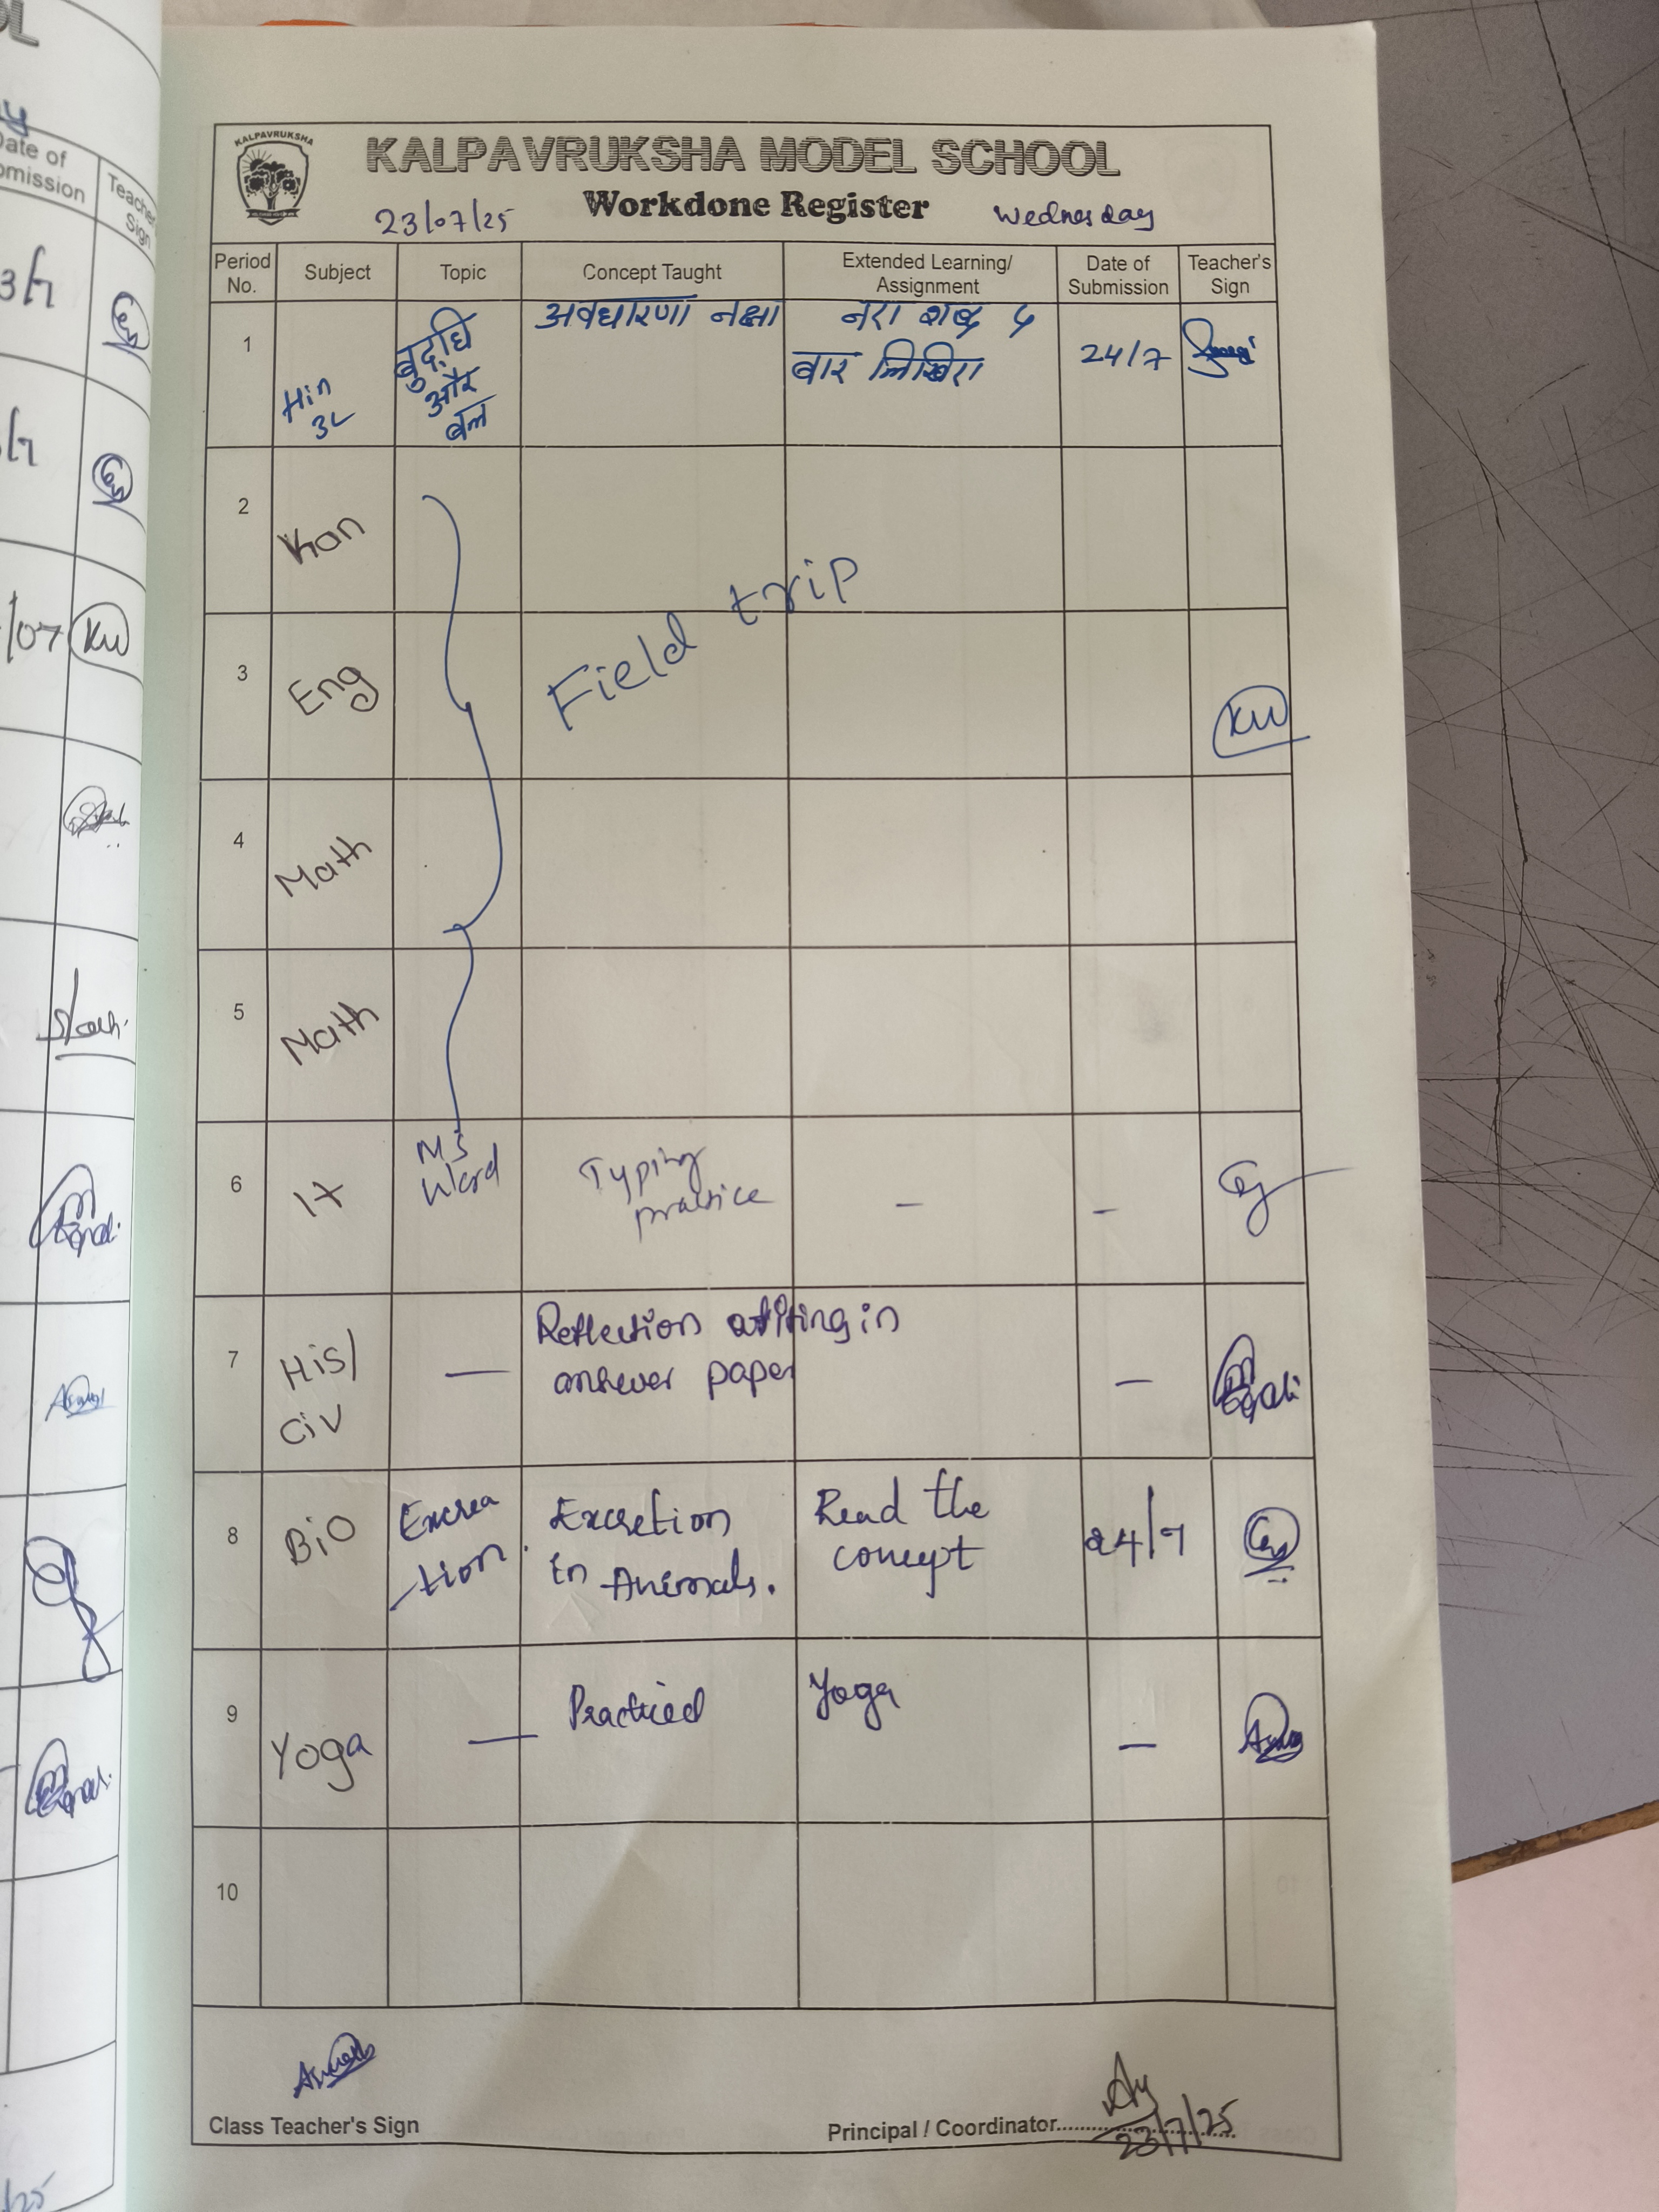 KALPAVRUKSHA
KALPAVRUKSHA MODEL SCHOOL
Workdone Register
23/07/25 Wednesday
Period No. Subject Topic Concept Taught Extended Learning/ Assignment Date of Submission Teacher's Sign
1 Hin 3L बुद्धि और बल अवधारणा नक्षा नए शब्द ५
बार लिखिए 24/7
2 Kan
Field trip
3 Eng KW
4 Math
5 Math
6 It MS Word Typing practice – –
7 His/ Civ — Reflection writing in
answer paper –
8 Bio Excrea Excretion Read the 24/7
-tion. in Animals. concept
9 Yoga — Practiced Yoga –
10
Class Teacher's Sign
Principal / Coordinator
23/7/25
Date of
Submission
Teacher's
Sign
/07 KW